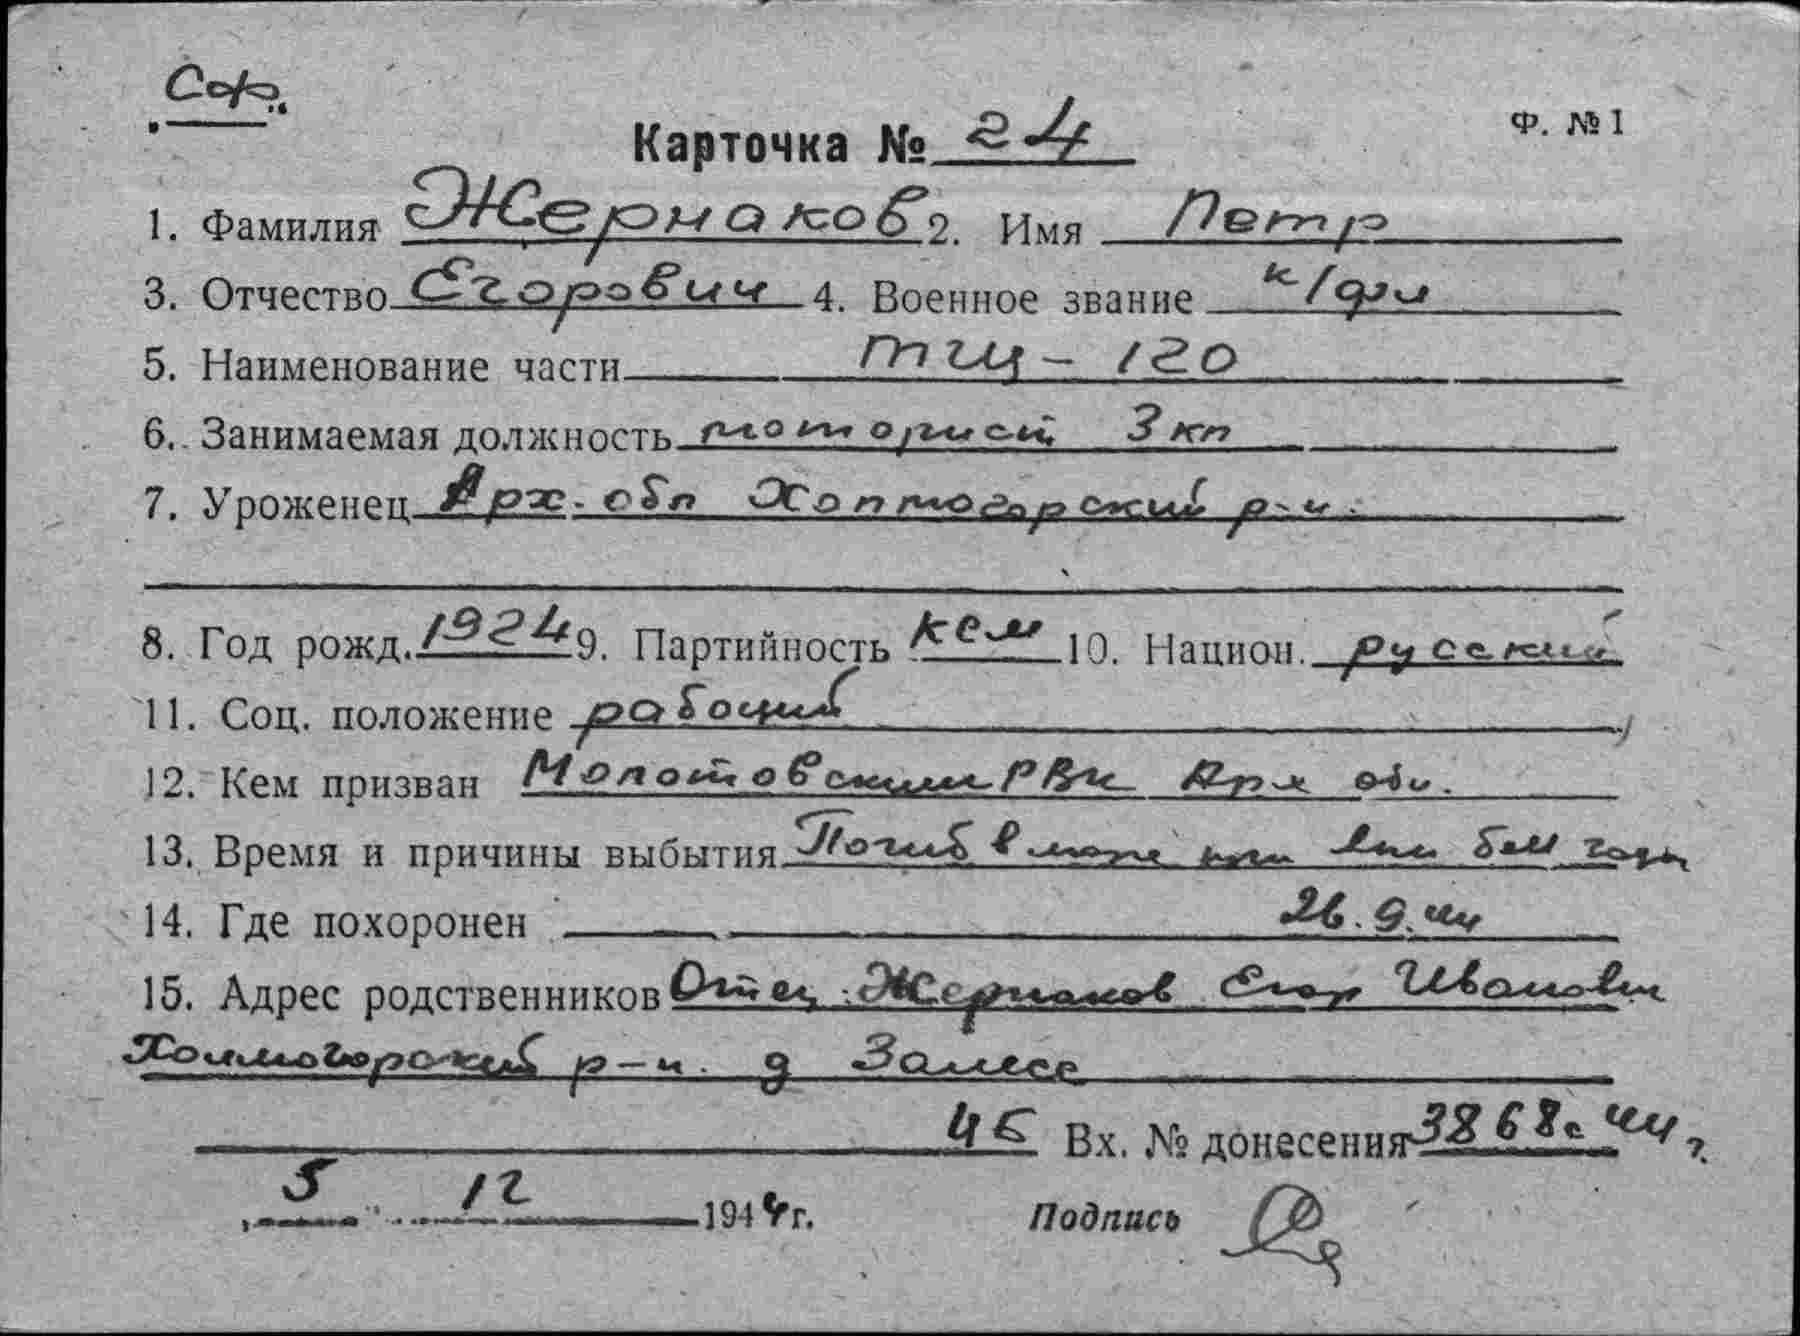 Карточка № 24
Ф. № 1
1. Фамилия Жернаков 2. Имя Петр
3. Отчество Егорович 4. Военное звание к/фл
5. Наименование части тщ - 120
6. Занимаемая должность моторист 3 кл
7. Уроженец Арх. обл Холмогорский р-н.
8. Год рожд. 1924 9. Партийность 10. Национ. русский
11. Соц. положение рабочий
12. Кем призван Молотовским РВК Арх обл.
13. Время и причины выбытия Погиб в море при
14. Где похоронен 26.9.44
15. Адрес родственников Отец Жернаков Егор Иванович
Холмогорский р-н. д Залесе
Вх. № донесения
5 12 1944 г. Подпись